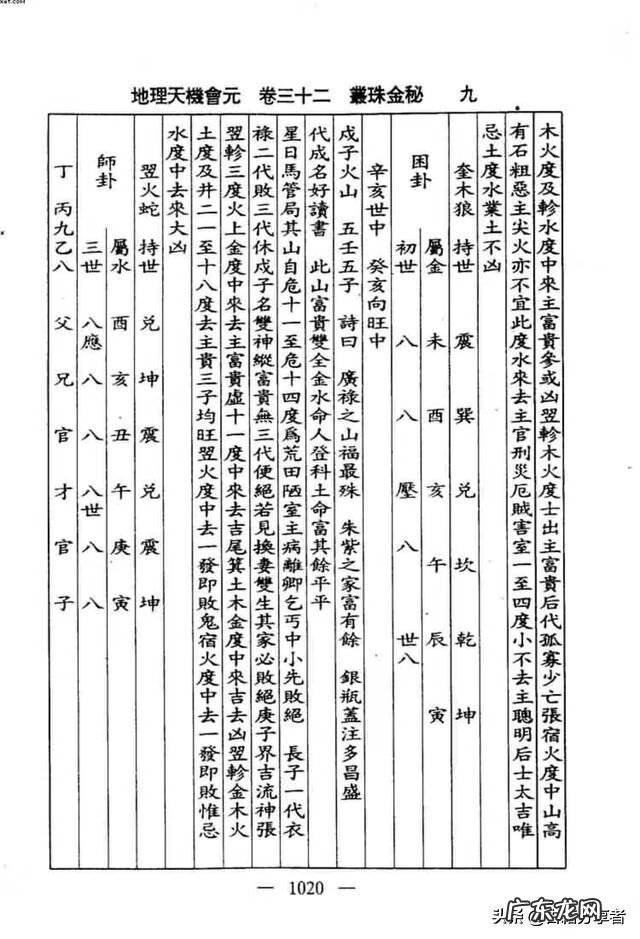 xet.com
地理天機會元 卷三十二 叢珠金秘 九
木火度及軫水度中來主富貴參或凶翌軫木火度士出主富貴后代孤寡少亡張宿火度中山高
有石粗惡主尖火亦不宜此度水來去主官刑災厄賊害室一至四度小不去主聰明后士太吉唯
忌土度水業土不凶
奎木狼 持世 震 巽 兌 坎 乾 坤
困卦 屬金 未 酉 亥 午 辰 寅
初世 八 八 壓 八 世八
辛亥世中 癸亥向旺中
戊子火山 五壬五子 詩曰 廣祿之山福最殊 朱紫之家富有餘 銀瓶蓋注多昌盛
代成名好讀書 此山富貴雙全金水命人登科土命富其餘平平
星日馬管局其山自危十一至危十四度為荒田陋室主病離鄉乞丐中小先敗絕 長子一代衣
祿二代敗三代休戊子名雙神縱富貴無三代便絕若見換妻雙生其家必敗絕庚子界吉流神張
翌軫三度火上金度中來去主富貴虛十一度中來去吉尾箕土木金度中來吉去凶翌軫金木火
土度及井二一至十八度去主貴三子均旺翌火度中去一發即敗鬼宿火度中去一發即敗惟忌
水度中去來大凶
翌火蛇 持世 兌 坤 震 兌 震 坤
師卦 屬水 酉 亥 丑 午 庚 寅
三世 八應 八 八 八世 八 八
丁 丙九乙八 父 兄 官 才 官 子
— 1020 —
头条@古籍分享者
广东龙网